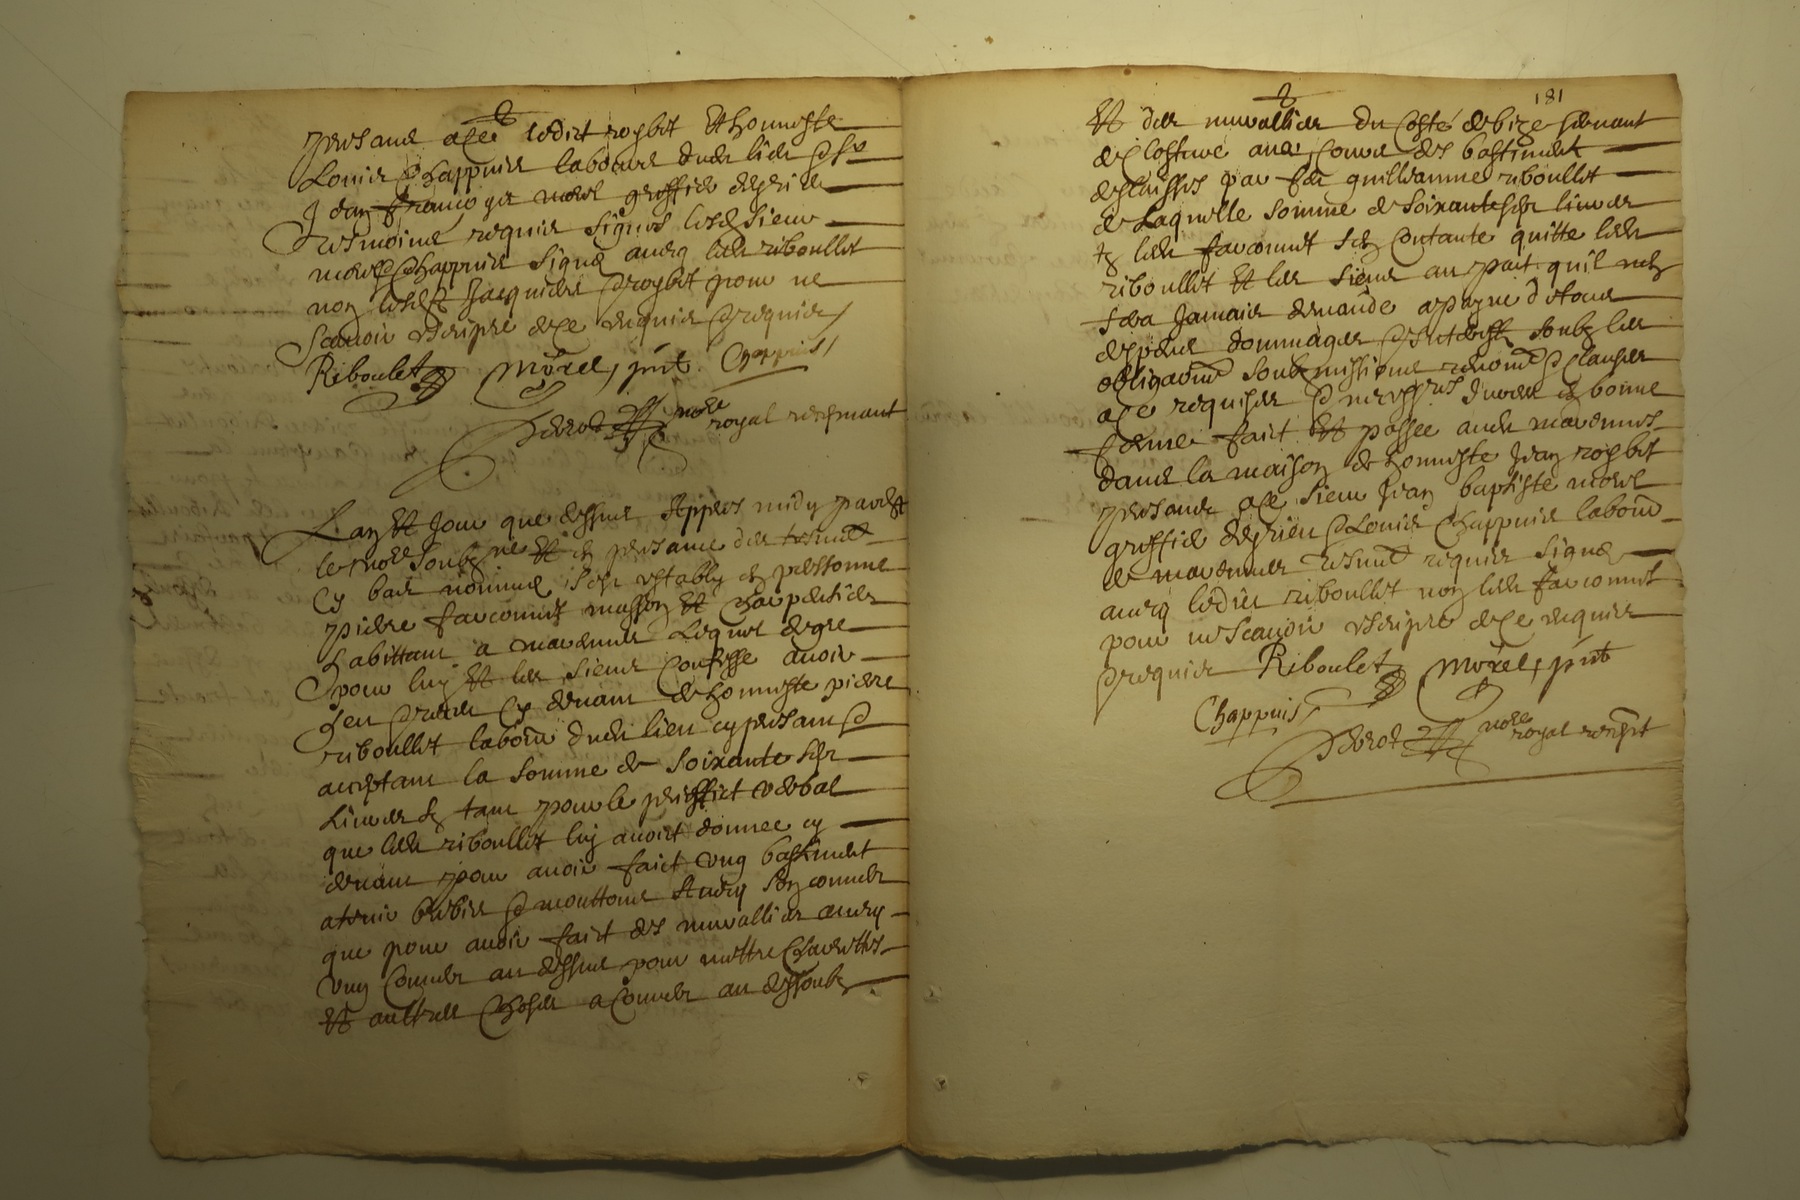 presans a ce ledict roybet et honneste
Louis Chappuis laboure dudt lieu &
Jean morel greffier de
tesmoins requis signes lesd sieur
morel & Chappuis signe avecq ledt riboullet
non lesdt Jacquier & roybet pour ne
scavoir escripre de ce enquis & requis
Riboulet Morel, pnt Chappuis
nore royal recepvant
L'an et Jour que dessus Appres midy pardt
le nore soubzne et en presance des tesmoit
cy bas nommes s'est estably en personne
pierre farconnet masson et charpentier
habittant a marennes Lequel de gre
pour luy et les siens Confesse avoir
heu & receu cy devant de honneste pierre
riboullet labour dudt lieu cy presant &
acceptant la somme de soixante sept
Livres tant pour le prisfaict verbal
que ledt riboullet luy avoict donnee cy
devant pour avoir faict ung bastiment
a tenir brebis & mouttons Avecq son couvert
que pour avoir faict des muvallies avecq
ung couvert au dessus pour mettre charettes
et aultres choses a couvert au dessoubz
181
Et des muvallies du costé de bize servant
de closture avec couvert des bastiment
delaisses par feu guilleaume riboullet
de Laquelle somme de soixante sept livres
ledt farconnet s'en contante quitte ledt
riboullet et les siens au pact quil nen
sera Jamais demande a peyne de tous
despens dommages & Intherestz soubz les
obligaons soubzmissions renons & clauses
a ce requises & necesses duewe en bonne
forme faict et passee audt marennes
dans la maison de honneste Jean roybet
presants a ce sieur Jean baptiste morel
greffier & Louis Chappuis labour
de marennes tesmoit requis signe
avecq ledict riboullet non ledt farconnet
pour ne scavoir escripre de ce enquis
& requis Riboulet Morel, pnt
Chappuis
nore royal recepvt